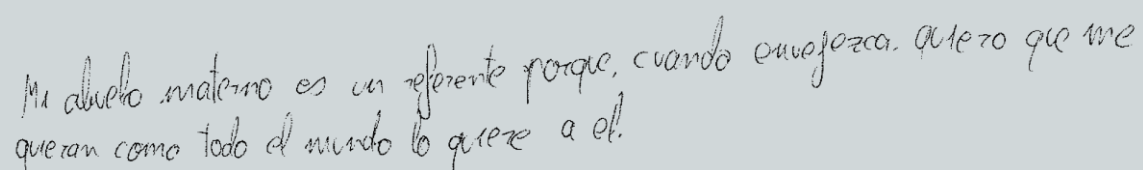 Mi abuelo materno es un referente porque, cuando envejezca, quiero que me
quieran como todo el mundo lo quiere a el.